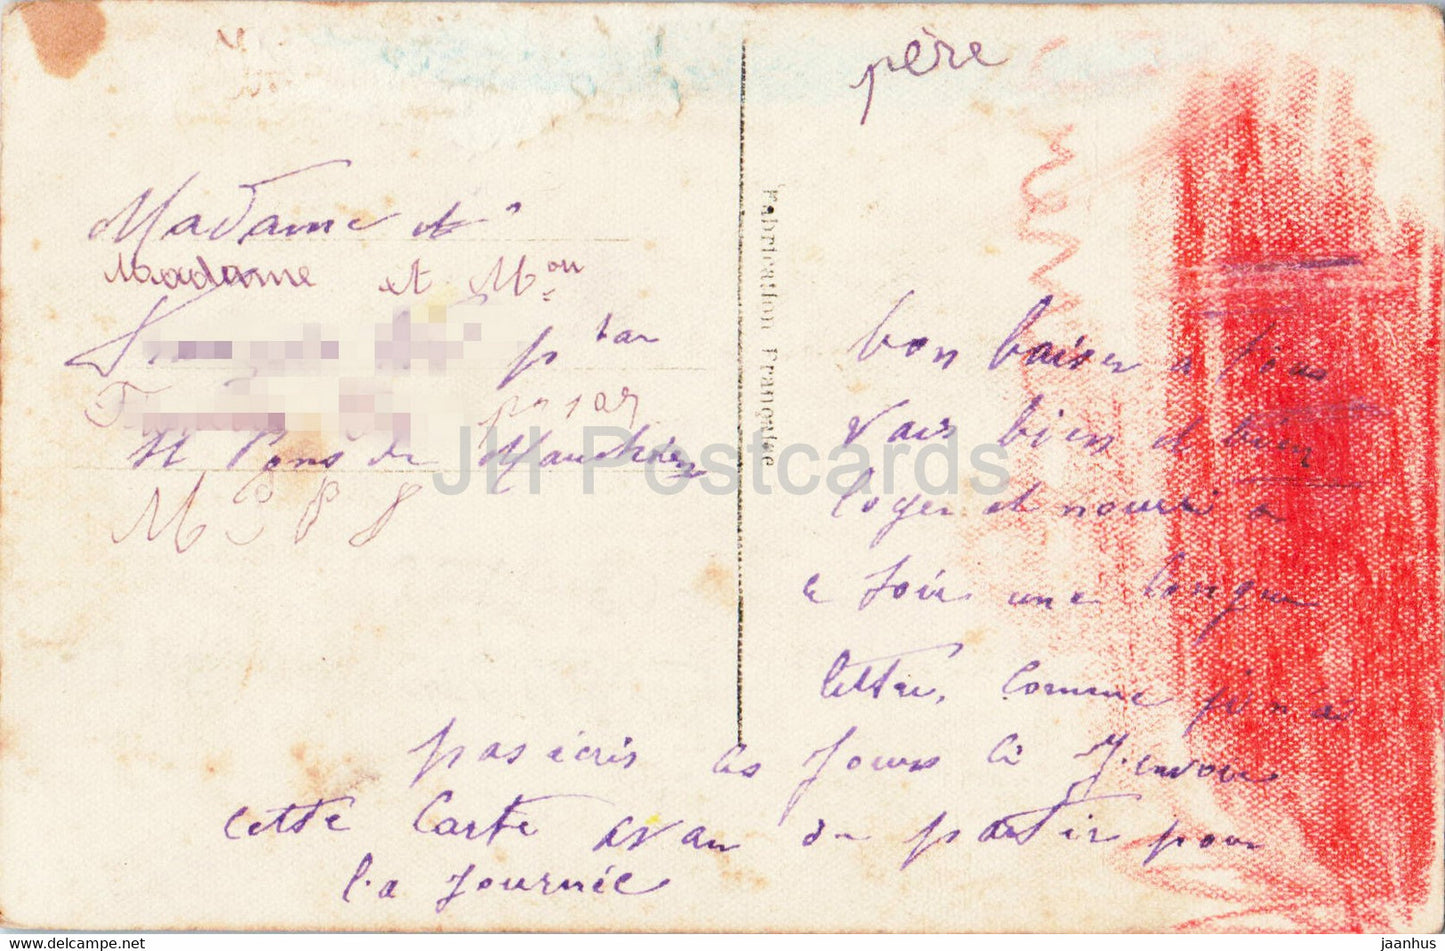 Madame et
Madame et Mon
p tan
St Pons de
M P P S
Fabrication Française
père
bon baiser a
vais bien et bien
loger et nourri a
ce soir une longue
lettre, Comme je n'ai
pas écris ces jours ci J'envoie
cette Carte avan de partir pour
la journée
JH Postcards
www.delcampe.net
jaanhus